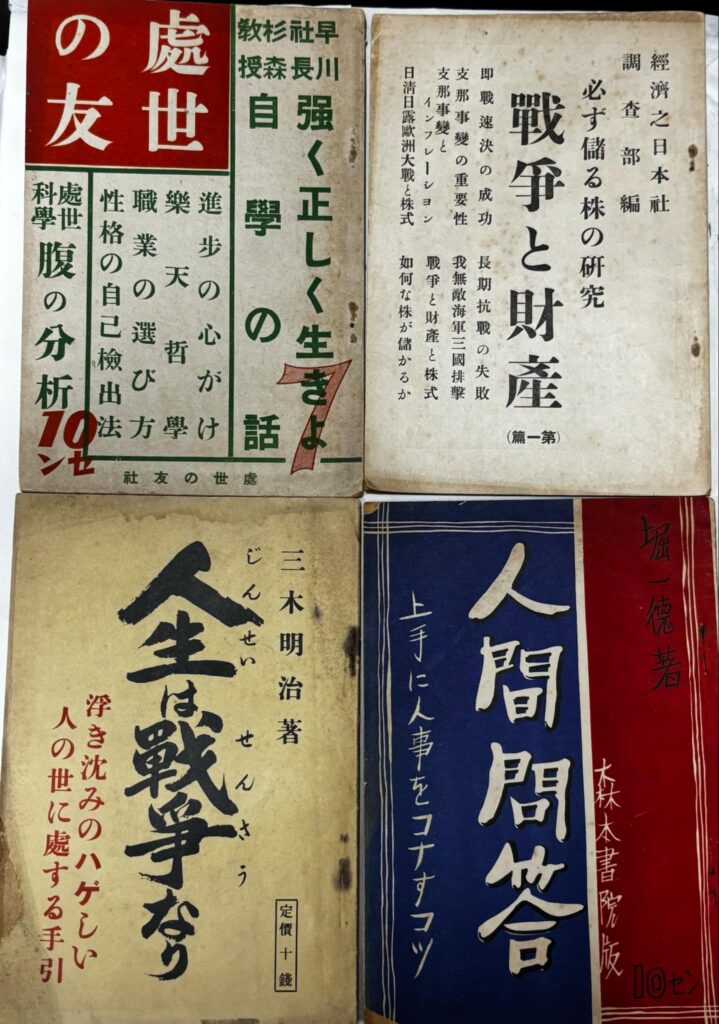 處世
の友
早川社長
杉森教授
强く正しく生きよ
自學の話
進步の心がけ
樂天哲學
職業の選び方
性格の自己檢出法
處世科學
腹の分析
7
10セン
處世の友社
經濟之日本社
調查部編
必ず儲る株の硏究
戰爭と財產
(第一篇)
卽戰速決の成功
支那事變の重要性
支那事變と
インフレーション
日淸日露歐洲大戰と株式
長期抗戰の失敗
我無敵海軍三國排擊
戰爭と財產と株式
如何な株が儲かるか
三木明治著
じんせい せんさう
人生は戰爭なり
浮き沈みのハゲしい
人の世に處する手引
定價十錢
堀一德著
人間問答
上手に人事をコナすコツ
森本書院版
10セン